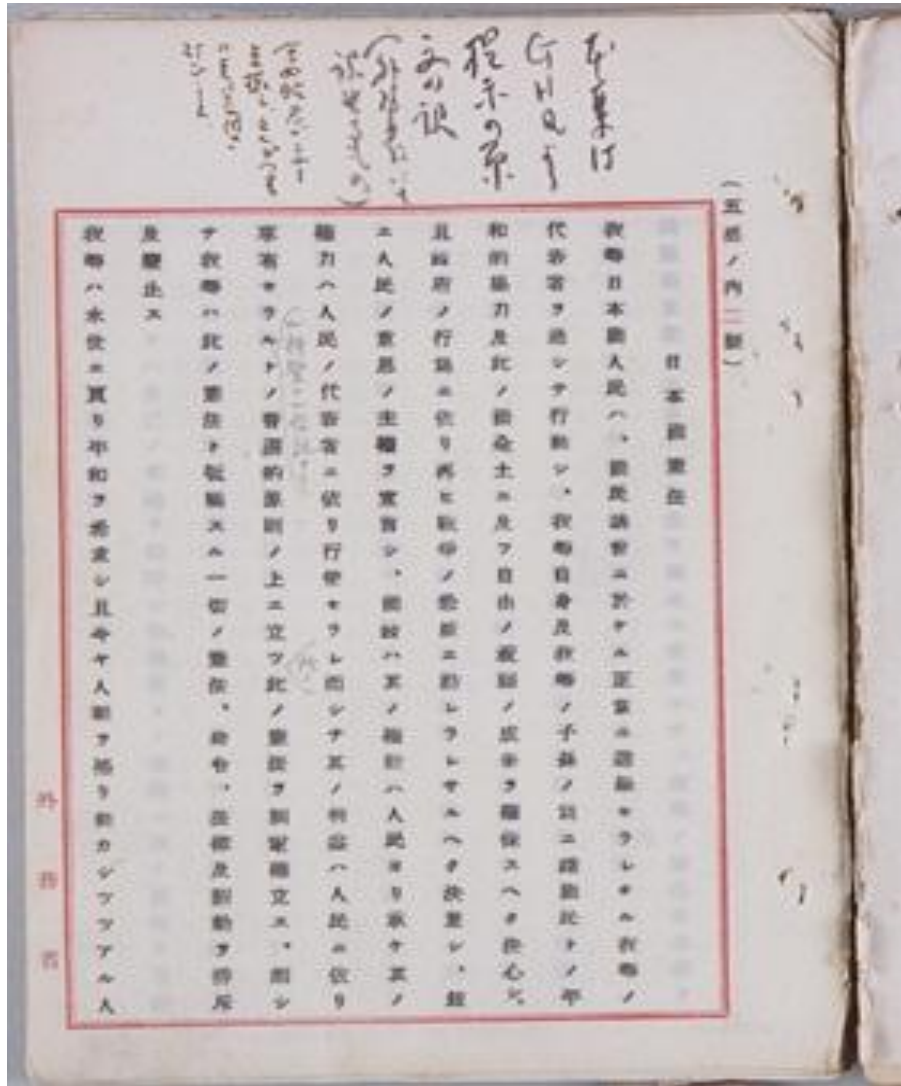 本案は
GHQより
提示の原
文の訳
(外務省にて
訳せるもの)
(五部ノ内二號)
日本國憲法
我等日本國人民ハ、國民議會ニ於ケル正當ニ選擧セラレタル我等ノ
代表者ヲ通シテ行動シ、我等自身及我等ノ子孫ノ爲ニ諸國民トノ平
和的協力及此ノ國全土ニ及フ自由ノ祝福ノ成果ヲ確保スヘク決心シ、
且政府ノ行爲ニ依リ再ヒ戰爭ノ慘禍ニ訪レラレサルヘク決意シ、茲
ニ人民ノ意思ノ主權ヲ宣言シ、國政ハ其ノ權能ハ人民ヨリ承ケ其ノ
權力ハ人民ノ代表者ニ依リ行使セラレ而シテ其ノ利益ハ人民ニ依リ
享有セラルトノ普遍的原則ノ上ニ立ツ此ノ憲法ヲ制定確立ス、而シ
テ我等ハ此ノ憲法ト牴觸スル一切ノ憲法、命令、法律及詔勅ヲ排斥
及廢止ス
我等ハ永世ニ亘リ平和ヲ希求シ且今ヤ人類ヲ揺リ動カシツツアル人
外務省